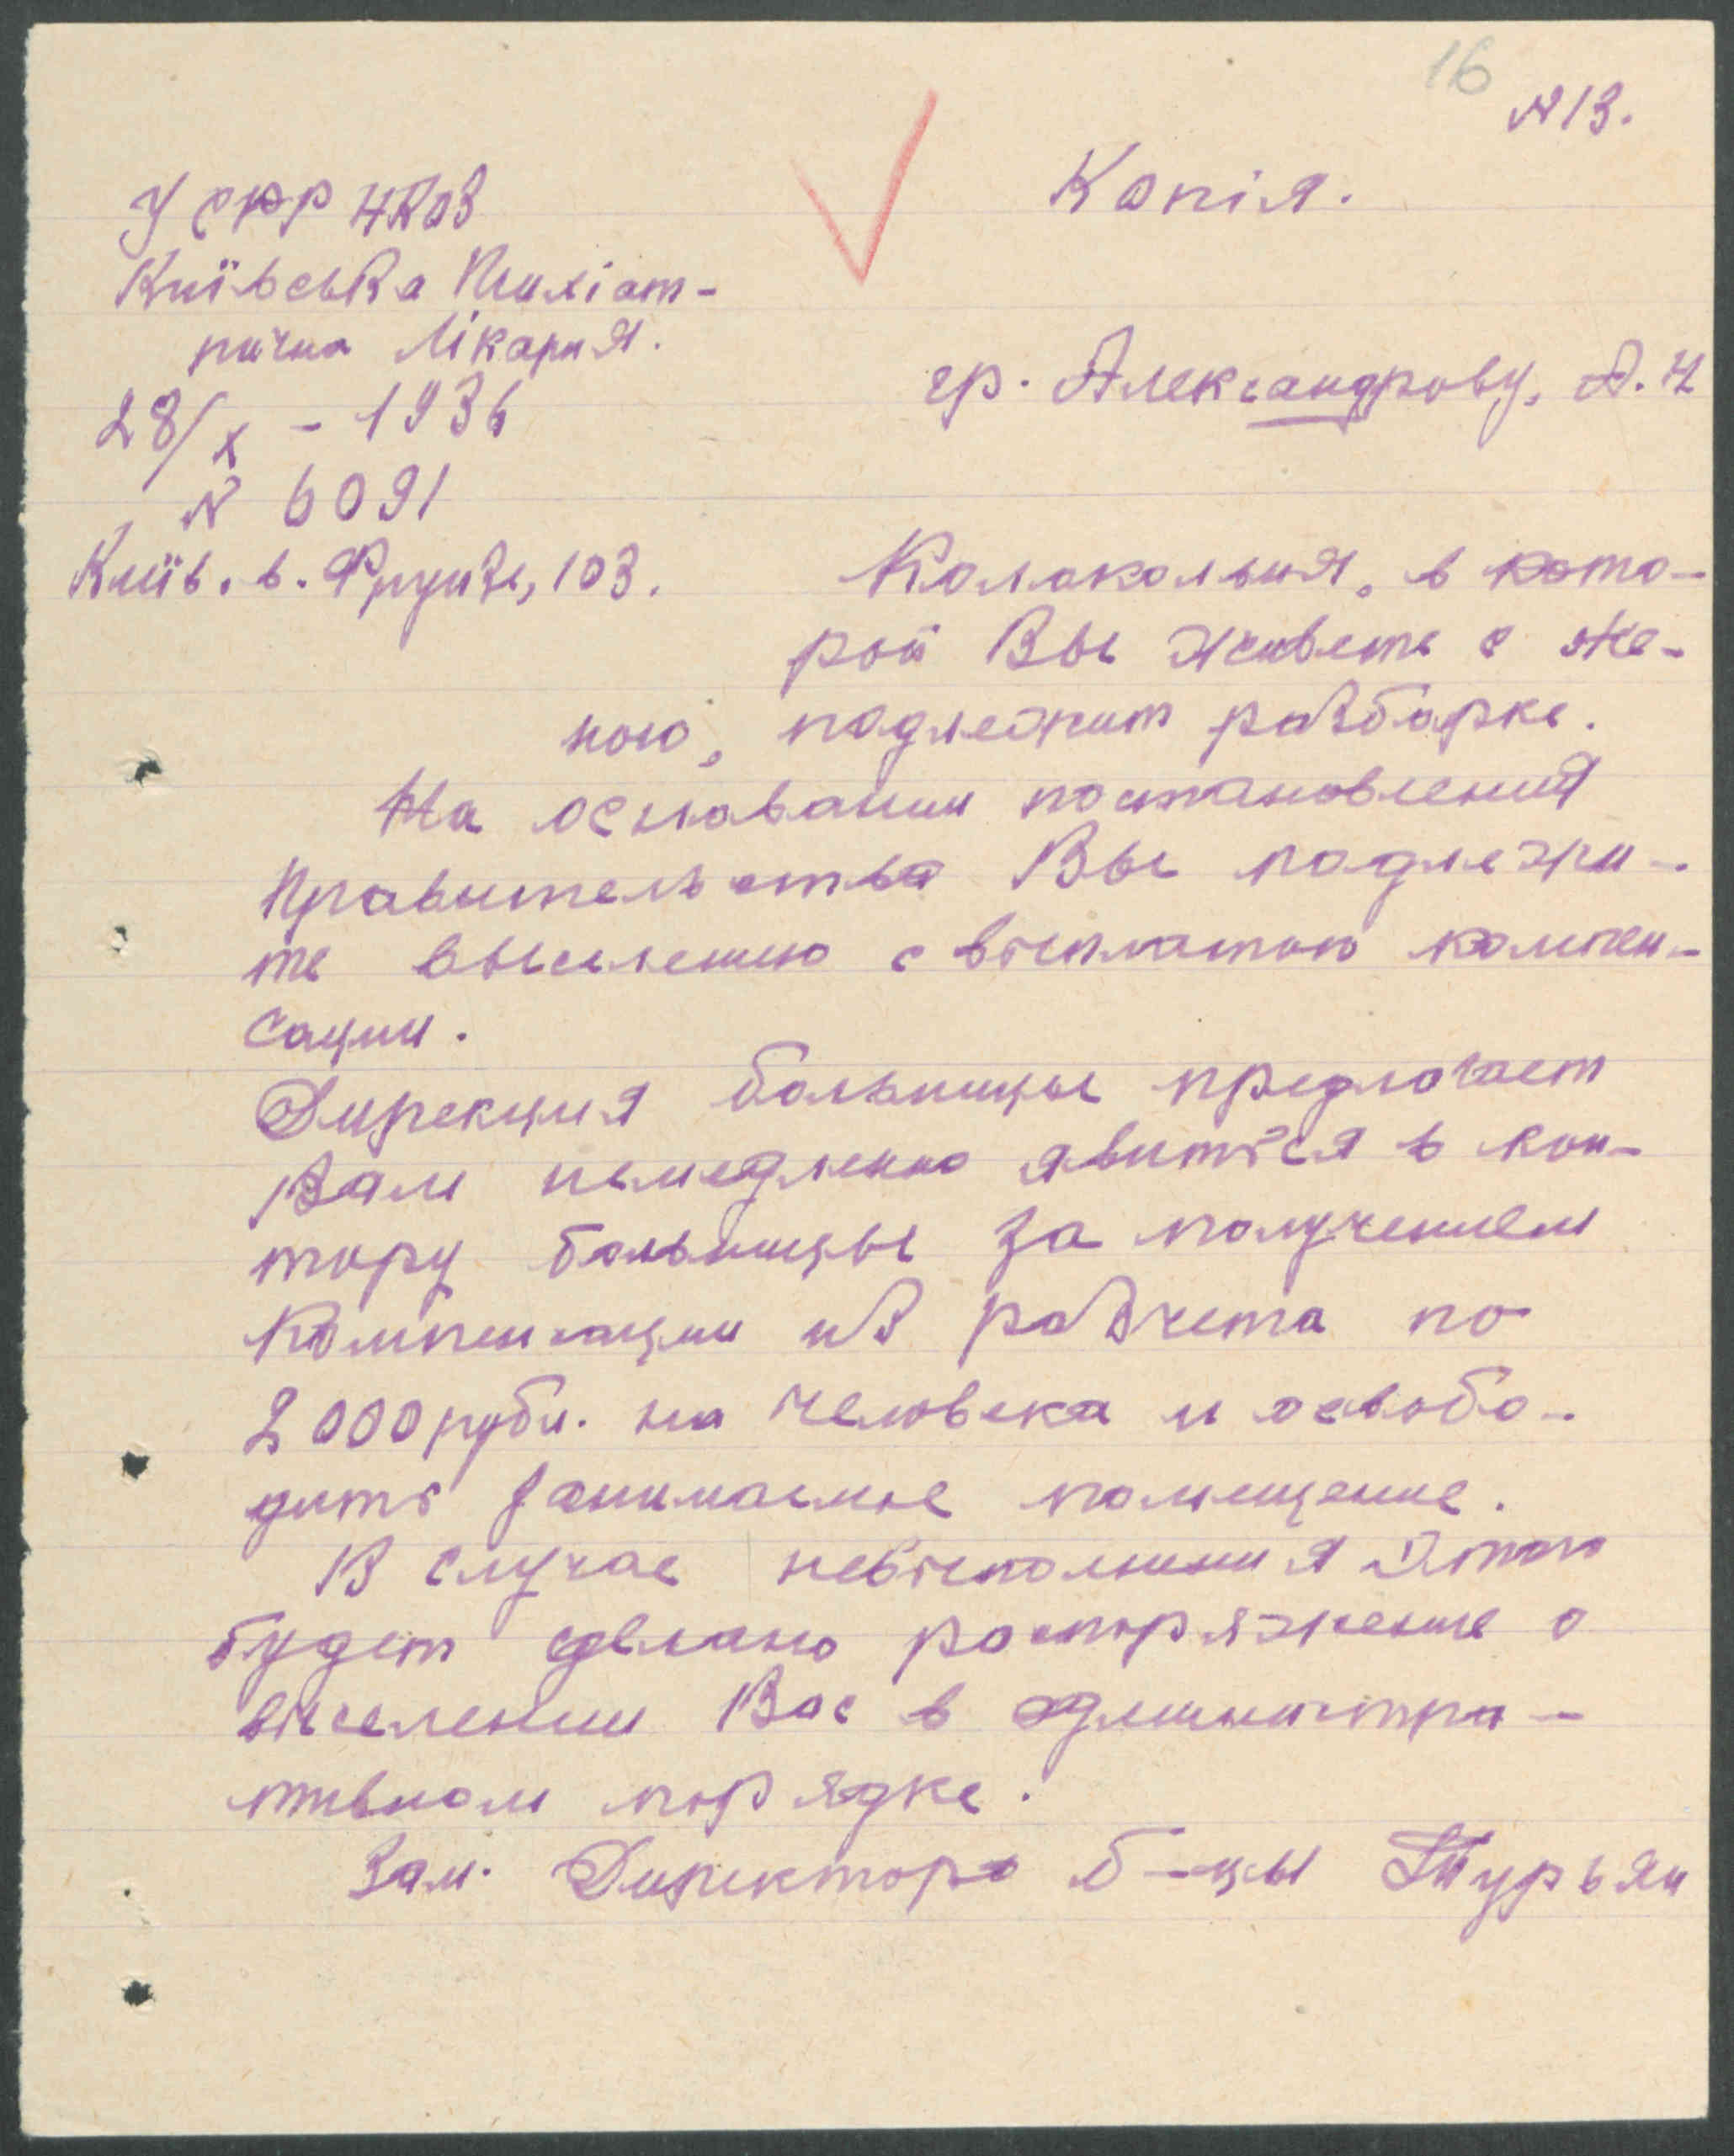 16
№13.
Копія.
УСРР НКОЗ
Київська Психіат-
рична Лікарня.
28/X - 1936
№ 6091
Київ. в. Фрунзе, 103.
гр. Александрову, А. И
Колокольня, в кото-
рой Вы живете с же-
ною, подлежит разборке.
На основании постановления
Правительства Вы подлежи-
те выселению с выплатою компен-
сации.
Дирекция больницы предлагает
Вам немедленно явиться в кон-
тору больницы за получением
компенсации из разчета по
2000 рубл. на человека и освобо-
дить занимаемое помещение.
В случае невыполнения этого
будет сделано распоряжение о
выселении Вас в администра-
тивном порядке.
Зам. Директора б-цы Турьян